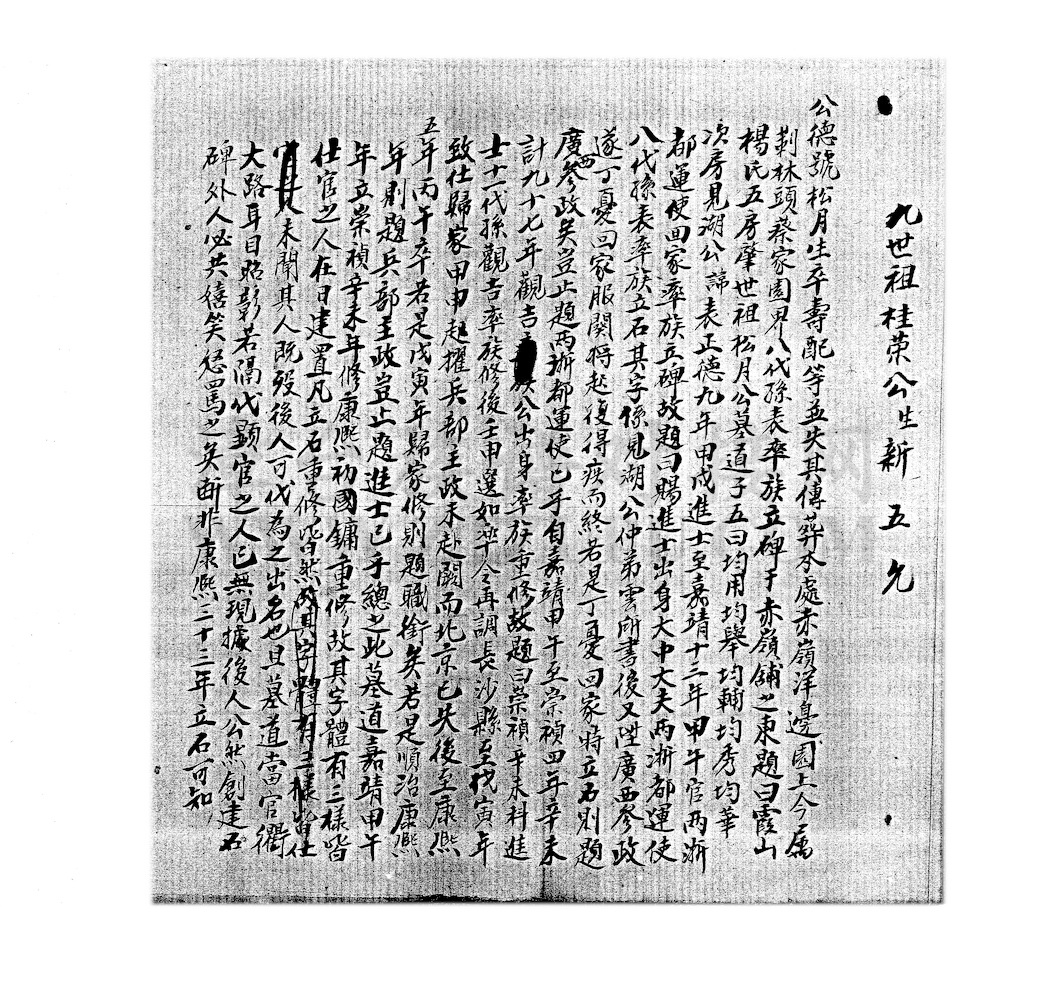 九世祖桂荣公生新五允
公德號松月生卒壽配等並失其傳葬本處赤嶺洋邊園上今属
剗林頭蔡家園界八代孫表率族立碑于赤嶺舖之東題曰霞山
楊氏五房肇世祖松月公墓道子五曰均用均舉均翰均秀均華
次房見湖公諱表正德九年甲戍進士至嘉靖十三年甲午官两浙
都運使回家率族立碑故題曰賜進士出身大中大夫两浙都運使
八代孫表率族立石其字係見湖公仲弟雲所書後又陞廣西参政
遂丁憂回家服闋将赴復得疾而終若是丁憂回家時立石則題
廣西参政矣豈止題两浙都運使已乎自嘉靖甲午至崇禎四年辛未
計九十七年觀吉公出身率族重修故題曰崇禎辛未科進
士十一代孫觀吉率族修後壬申選如臯令再調長沙縣至戊寅年
致仕歸家甲申起擢兵部主政未赴闕而北京已失後至康熙
五年丙午卒若是戊寅年歸家修則題職銜矣若是順治康熙
年則題兵部主政豈止題進士已乎總之此墓道嘉靖甲午
年立崇禎辛未年修康熙初國鏞重修故其字體有三樣皆
仕官之人在日建置凡立石重修皆然故其字體有三樣皆仕
未聞其人既殁後人可代為之出名也且墓道當官衢
大路耳目昭彰若隔代顯官之人已無現據後人公然創建石
碑外人必共嬉笑怒罵之矣断非康熙三十三年立石可知